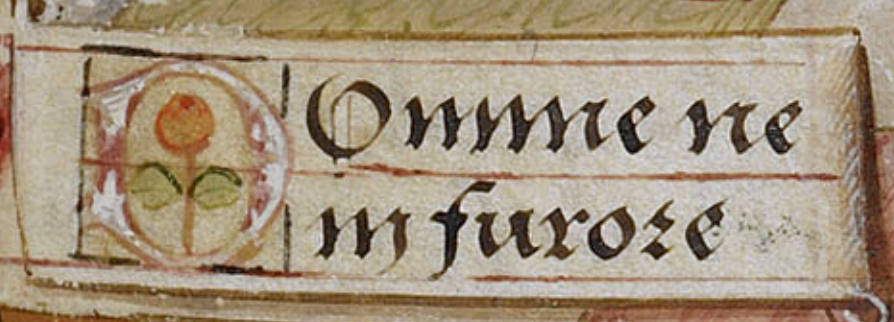 DOmine ne
in furore